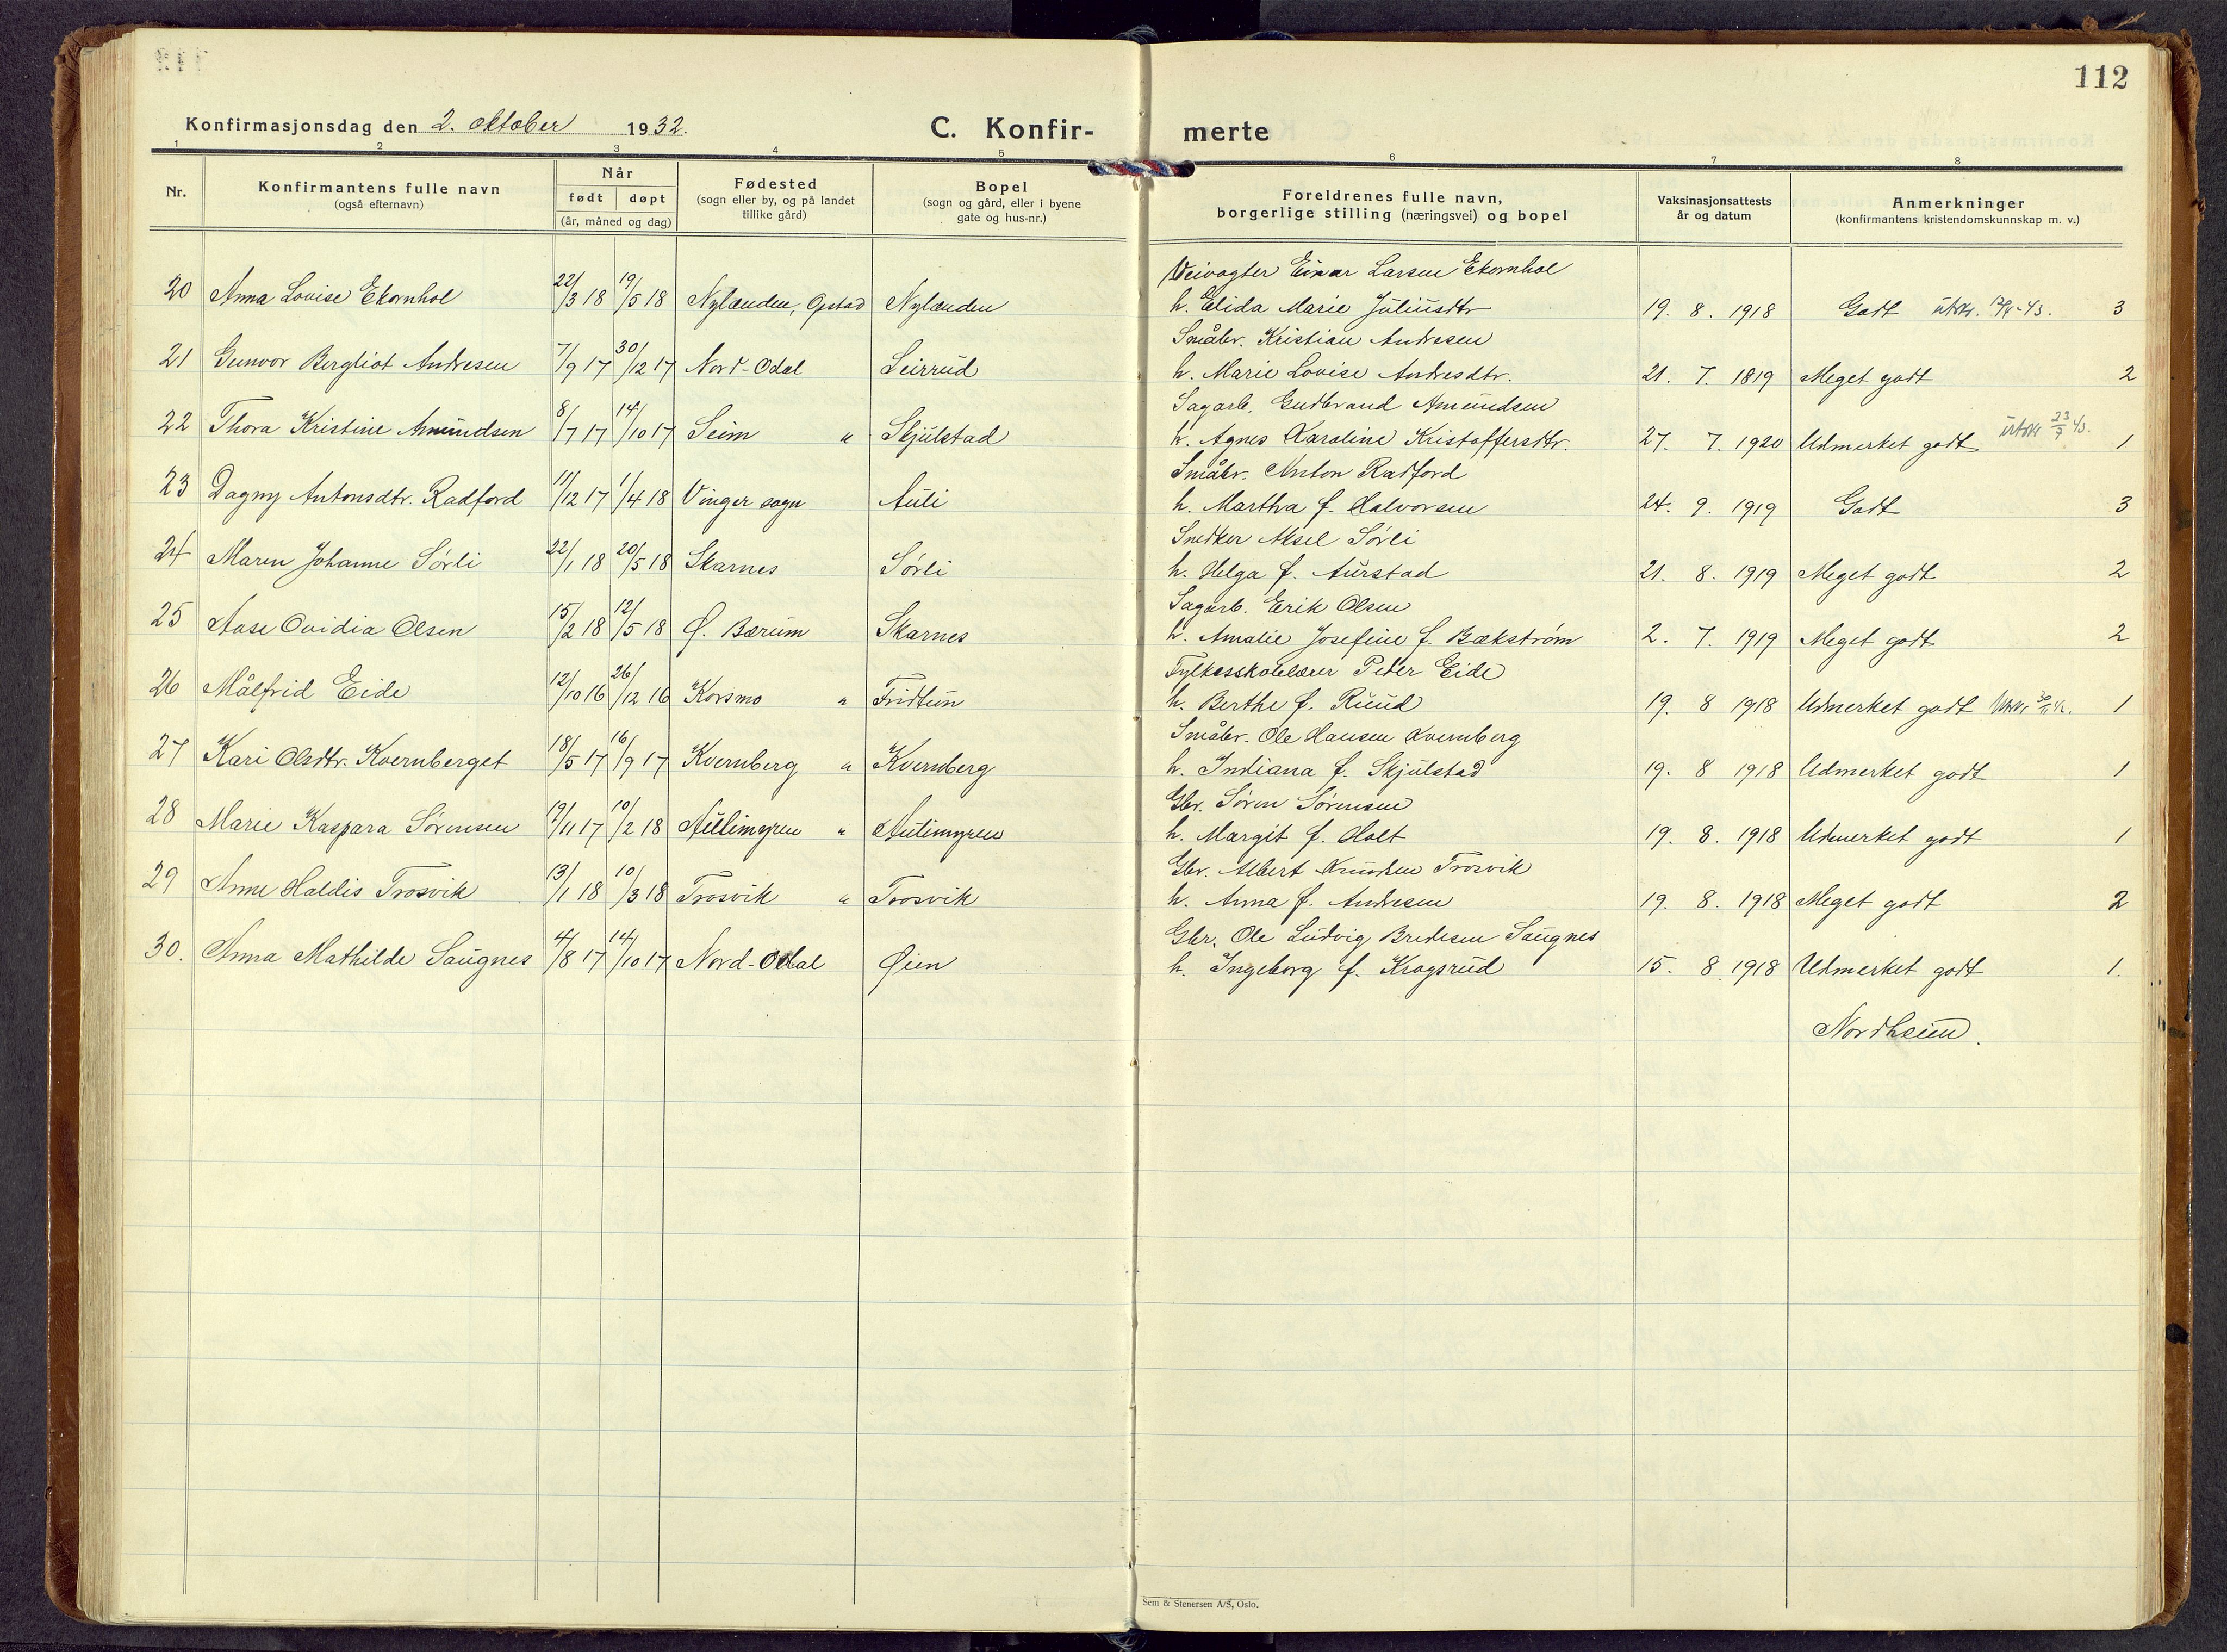 112
Konfirmasjonsdag den 2. oktober 1932.
C. Konfir- merte
1 2 3 4 5 6 7 8
Nr.
Konfirmantens fulle navn
(også efternavn)
Når
født døpt
(år, måned og dag)
Fødested
(sogn eller by, og på landet
tillike gård)
Bopel
(sogn og gård, eller i byene
gate og hus-nr.)
Foreldrenes fulle navn,
borgerlige stilling (næringsvei) og bopel
Vaksinasjonsattests
år og datum
Anmerkninger
(konfirmantens kristendomskunnskap m. v.)
Veivogter Einar Larsen Ekornhol
20 Anna Lovise Ekornhol 22/3 18 19/5 18 Nylænden, Opstad Nylænden h. Elida Marie Juliusdtr 19. 8. 1918 Godt utskr. 3
Småbr. Kristian Andresen
21 Gunvor Bergliot Andresen 7/9 17 30/12 17 Nord-Odal Leirrud h. Marie Lovise Andresdtr. 21. 7. 1819 Meget godt 2
Sagarb. Gudbrand Amundsen
22 Thora Kristine Amundsen 8/7 17 14/10 17 Seim " Skjulstad h. Agnes Karoline Kristoffersdtr. 27. 7. 1920 Udmerket godt utskr 23/7 43. 1
Småbr. Anton Radford
23 Dagny Antonsdtr. Radford 11/12 17 1/4 18 Vinger sogn Auli h. Martha f. Halvorsen 24. 9. 1919 Godt 3
Snedker Aksel Sørli
24 Maren Johanne Sørli 22/1 18 20/5 18 Skarnes Sørli h. Helga f. Aurstad 21. 8. 1919 Meget godt 2
Sagarb. Erik Olsen
25 Aase Ovidia Olsen 15/2 18 12/5 18 Ø. Bærum Skarnes h. Amalie Josefine f. Bækstrøm 2. 7. 1919 Meget godt 2
Fylkesskolelærer Peter Eide
26 Målfrid Eide 12/10 16 26/12 16 Korsmo " Fridtun h. Berthe f. Ruud 19. 8 1918 Udmerket godt 1
Småbr. Ole Hansen Kvernberg
27 Kari Olsdtr. Kvernberget 18/5 17 16/9 17 Kvernberg " Kvernberg h. Indiana f. Skjulstad 19. 8 1918 Udmerket godt 1
Gbr. Søren Sørensen
28 Marie Kaspara Sørensen 19/11 17 10/2 18 Aulimyren " Aulimyren h. Margit f. Holt 19. 8. 1918 Udmerket godt 1
Gbr. Albert Knudsen Trosvik
29 Anne Haldis Trosvik 13/1 18 10/3 18 Trosvik " Trosvik h. Anna f. Andresen 19. 8. 1918 Meget godt 2
Gbr. Ole Ludvig Bredesen Saugnes
30. Anna Mathilde Saugnes 4/8 17 14/10 17 Nord-Odal Øien h. Ingeborg f. Krogsrud 15. 8. 1918 Udmerket godt 1.
Nordheim.
Sem & Stenersen A/S, Oslo.